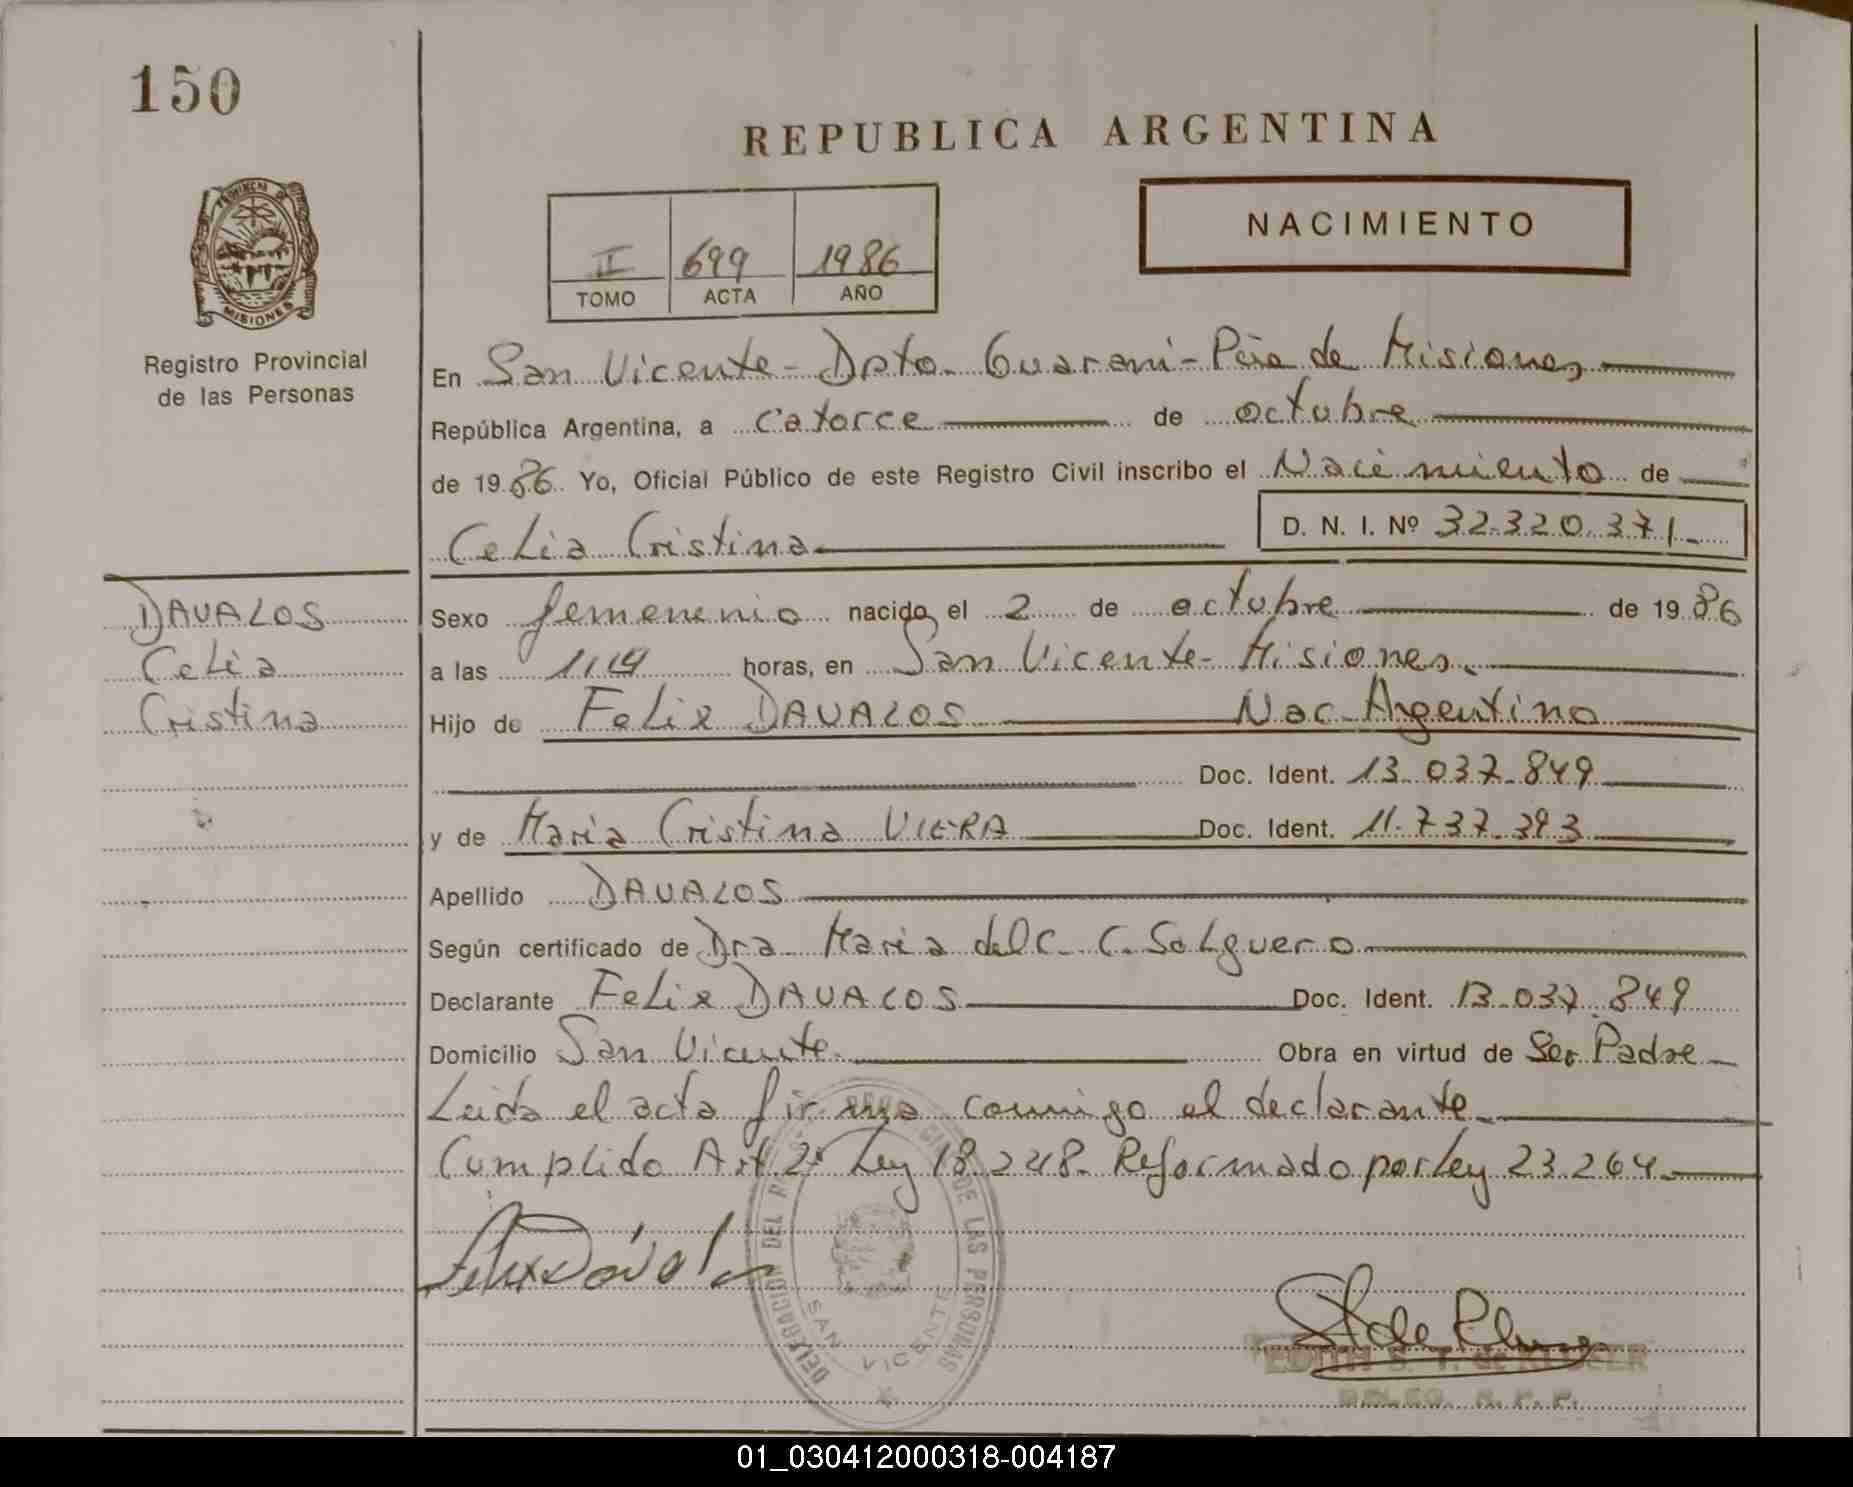 150
REPUBLICA ARGENTINA
NACIMIENTO
II 699 1986
TOMO ACTA AÑO
PROVINCIA DE
MISIONES
Registro Provincial
de las Personas
En San Vicente - Dpto. Guarani - Pcia de Misiones
República Argentina, a Catorce de octubre
de 1986 Yo, Oficial Público de este Registro Civil inscribo el Nacimiento de
Celia Cristina D. N. I. Nº 32.320.371
DAVALOS
Celia
Cristina
Sexo femenenio nacida el 2 de octubre de 1986
a las horas, en San Vicente - Misiones
Hijo de Felix DAVALOS Nac. Argentino
Doc. Ident. 13.037.849
y de Maria Cristina VIERA Doc. Ident. 11.737.393
Apellido DAVALOS
Según certificado de Dra Maria del C. C. Salguero
Declarante Felix DAVALOS Doc. Ident. 13.037.849
Domicilio San Vicente Obra en virtud de Ser Padre
Leida el acta firma conmigo el declarante
Cumplido Art 2º Ley 18.248. Reformado por Ley 23.264
DELEGACION DEL DE LAS PERSONAS
SAN VICENTE
EDITH S. T. de
DELEG. R. P. P.
01_030412000318-004187